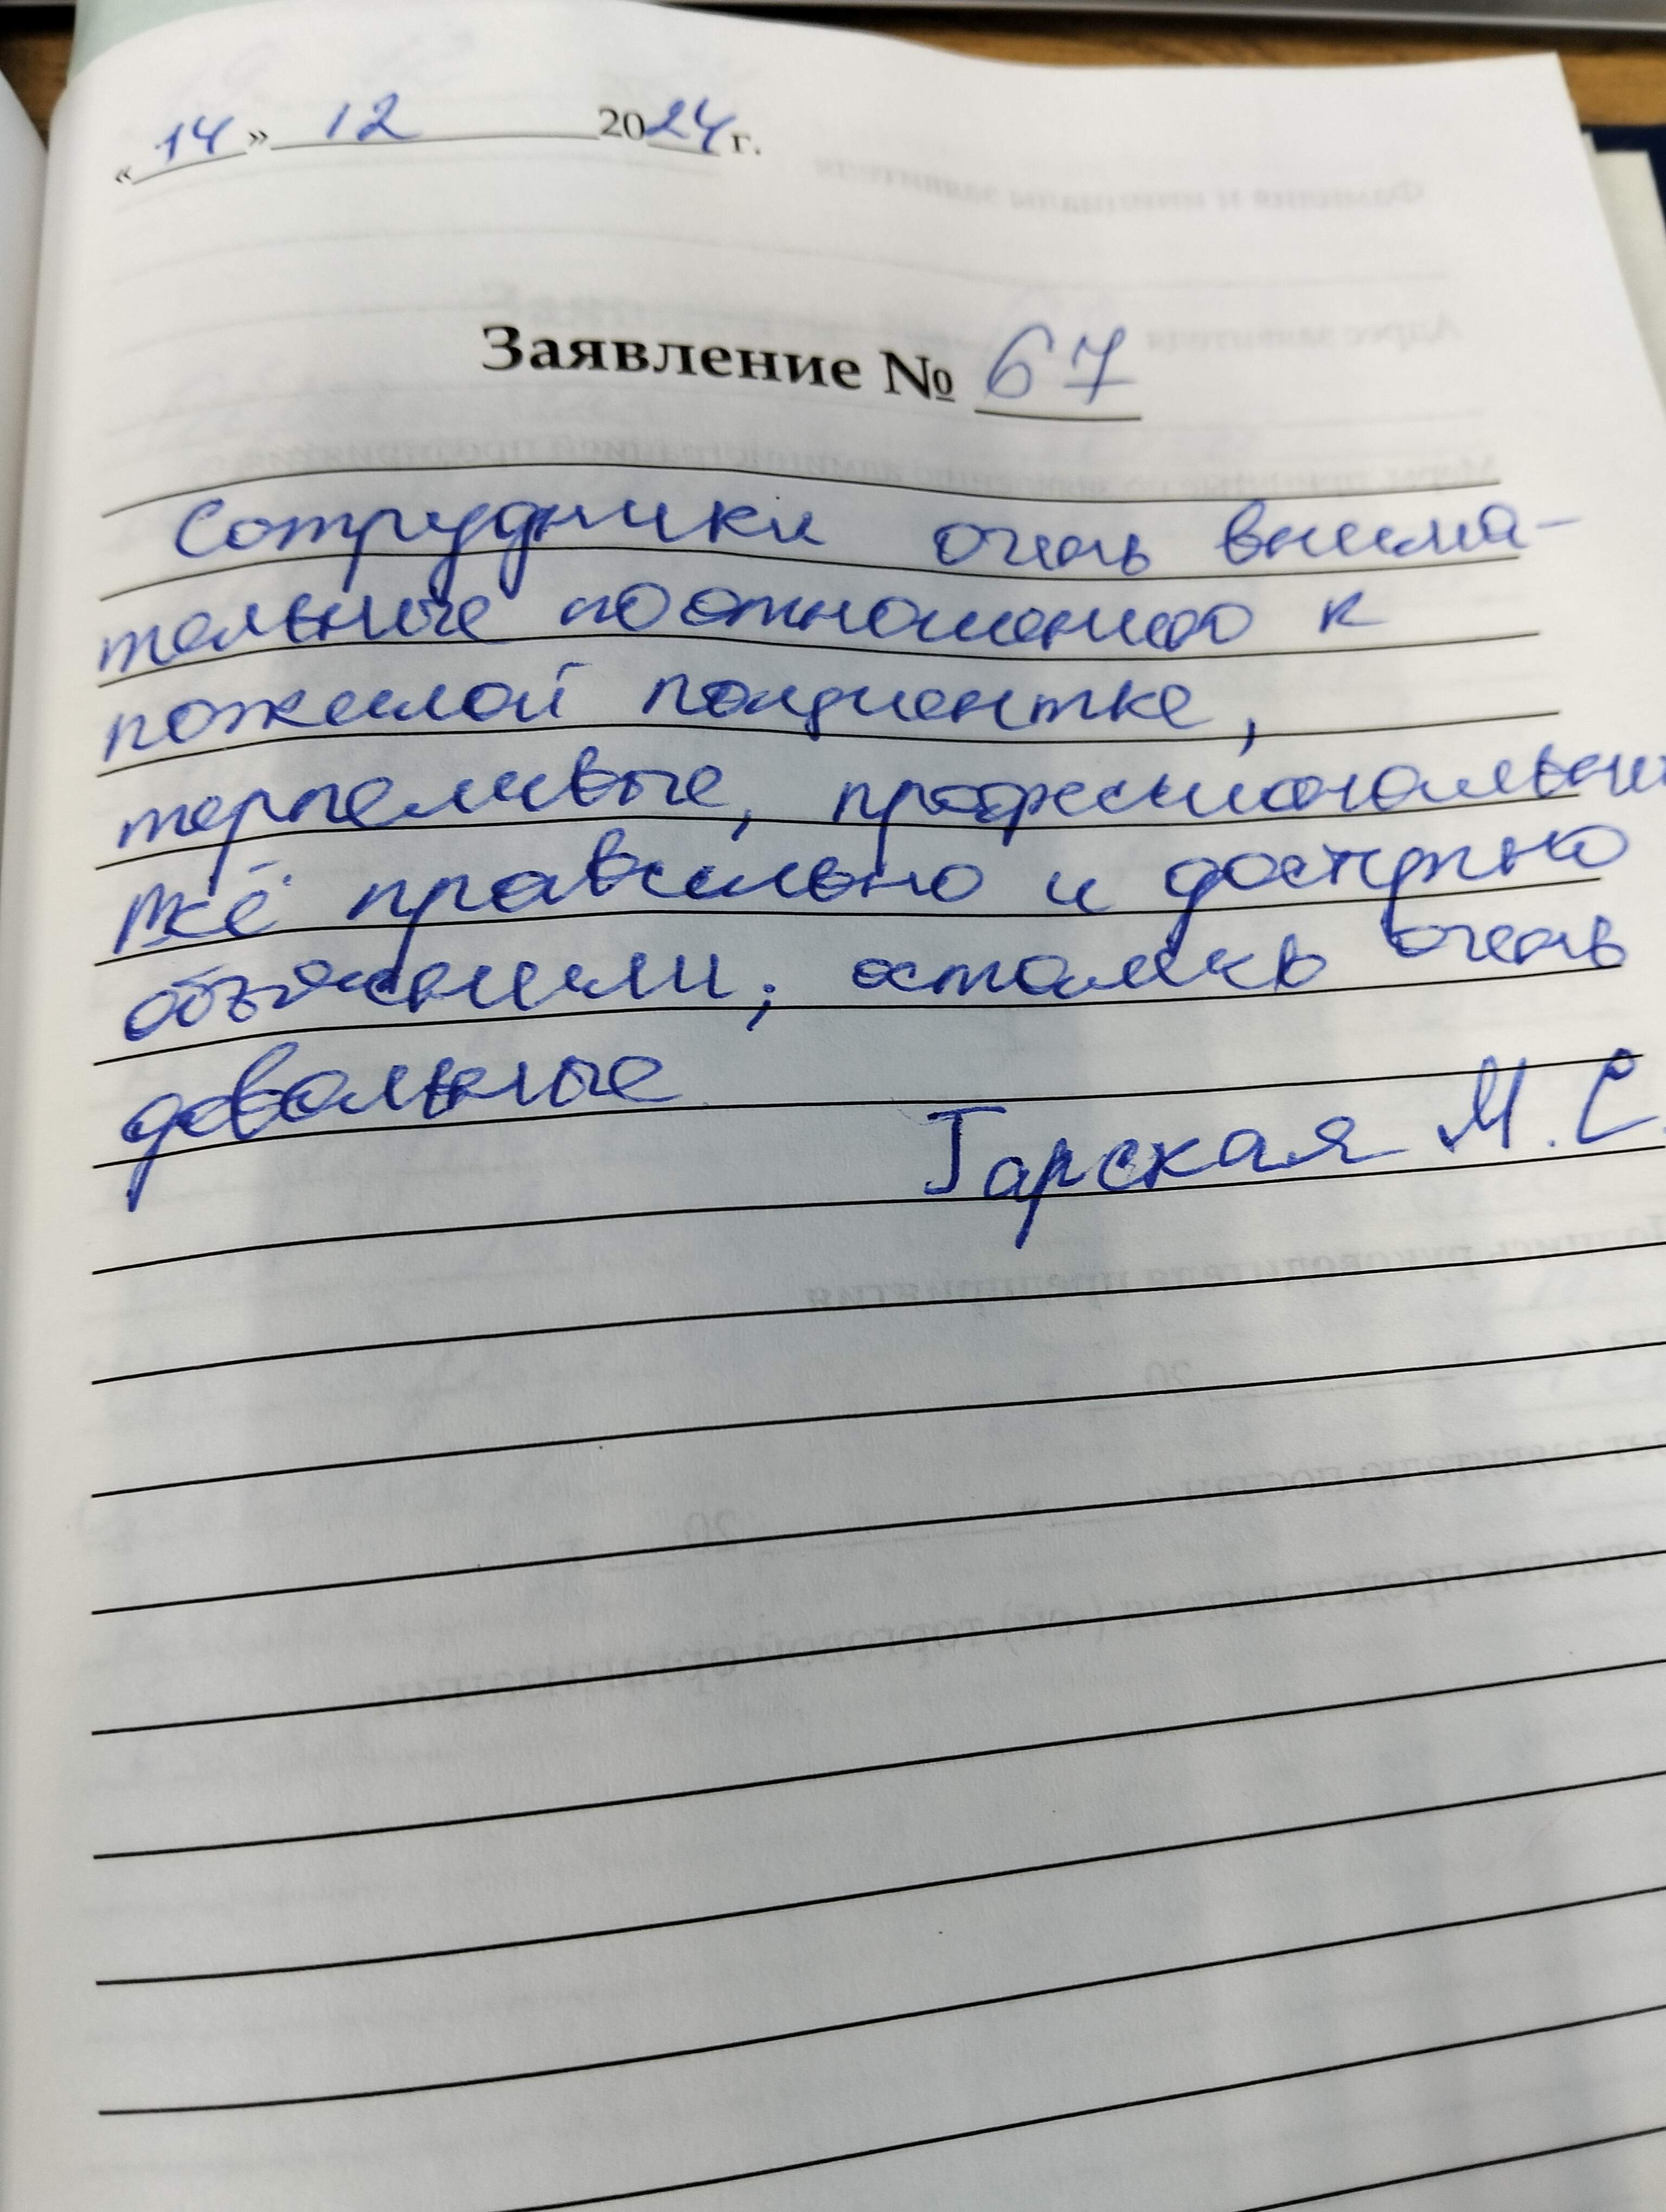 «14» 12 2024 г.
Заявление № 67
Сотрудники очень внима-
тельные по отношению к
пожилой пациентке,
терпеливые, профессиональны
всё правильно и доступно
объяснили, остались очень
довольные
Гарская М.С.